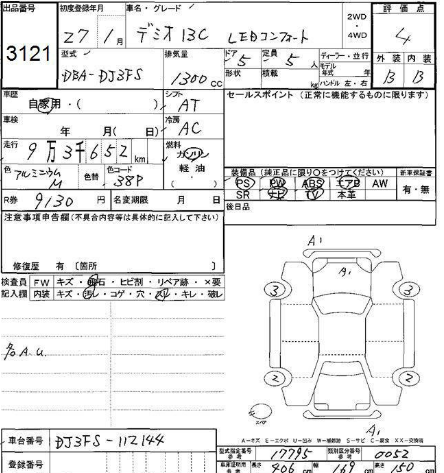 出品番号
3121
初度登録年月
27年1月
車名・グレード
デミオ13C LEDコンフォート
2WD
・
4WD
評価点
4
型式
DBA-DJ3FS
排気量
1300cc
ドア
5
定員
5人
ディーラー・並行
モデル年式 年
外装 内装
B B
形状
積載 kg
ハンドル 左・右
車歴
自家用・( )
シフト
AT
セールスポイント(正常に機能するものに限ります)
車検
年 月( 日)
冷房
AC
走行
9万3千652km
燃料
ガソリン
軽油
色
アルミニウムM
色替
色コード
38P
装備品(純正品に限り○をつけてください)
新車保証書
PS PW ABS エアB AW
SR ナビ TV 本革
有・無
R券
9130円
名変期限 月 日
後日品
注意事項申告欄(不具合内容等は具体的に記入して下さい)
修復歴 有〔箇所 〕
検査員記入欄
FW キズ・飛石・ヒビ割・リペア跡・×要
内装 キズ・汚レ・コゲ・穴・スレ・キレ・破レ
各A.U.
A1
A1
3 3
2 2
スペア
A1
A-キズ E-エクボ U-凹み W-補修跡 S-サビ C-腐食 XX-交換済
車台番号
DJ3FS-112144
型式指定番号
参考
17795
類別区分番号
参考
0052
登録番号
車庫証明用
参考
長さ
406cm
幅
169cm
高さ
150cm